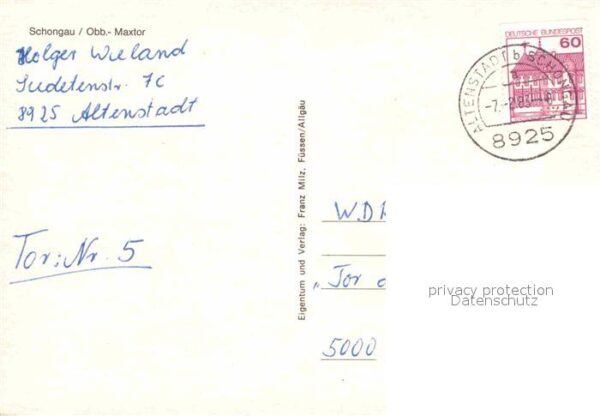 Schongau / Obb.- Maxtor
Holger Wieland
Sudetenstr. 7C
8925 Altenstadt
Tor: Nr. 5
Eigentum und Verlag: Franz Milz, Füssen/Allgäu
DEUTSCHE BUNDESPOST
60
ALTENSTADT b SCHONGAU
a
-7.-2.83-
8925
WDR
„Tor
5000
privacy protection
Datenschutz